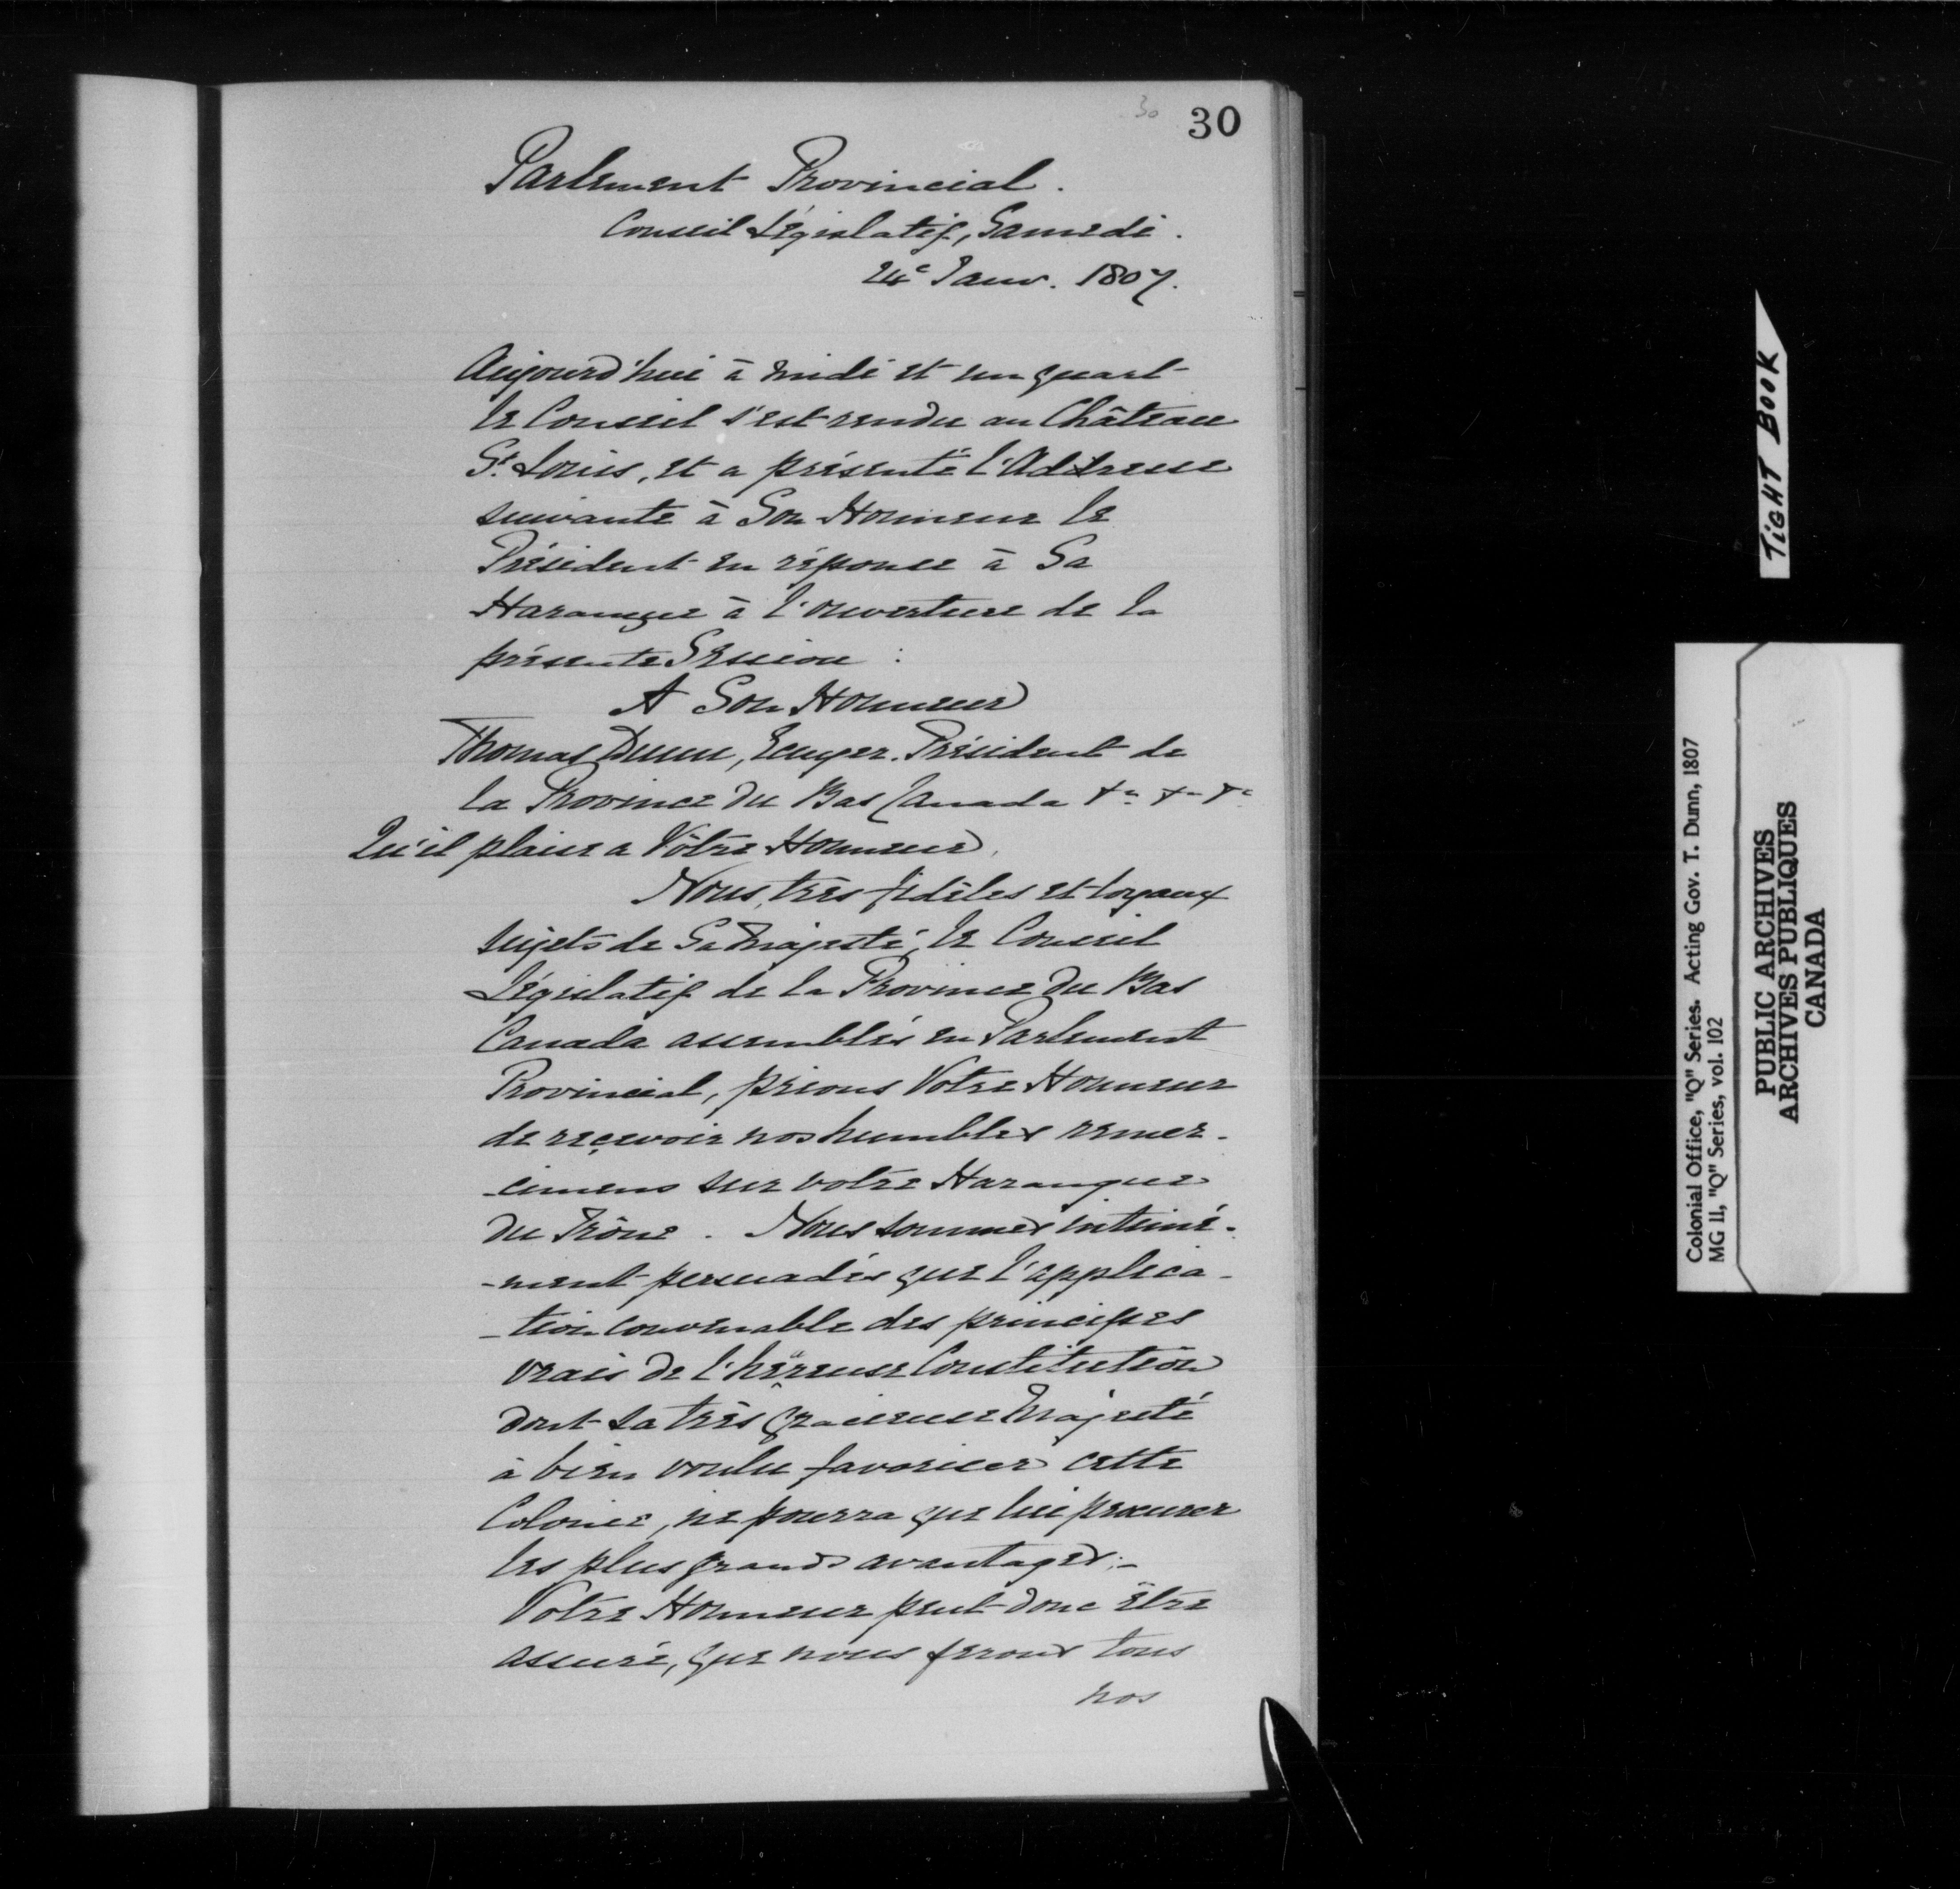 30
30
Parlement Provincial.
Conseil Législatif, Samedi.
24e Janv. 1807.
Aujourd'hui à midi et un quart
le Conseil s'est rendu au Château
St. Louis, et a présenté l'Addresse
suivante à Son Honneur le
Président en réponse à Sa
Harangue à l'ouverture de la
présente Session :
A Son Honneur
Thomas Dunn, Ecuyer. Président de
la Province du Bas Canada &c &c &c
Qu'il plaise a Vôtre Honneur,
Nous, très fidèles et loyaux
sujets de Sa Majesté, le Conseil
Législatif de la Province du Bas
Canada assemblés en Parlement
Provincial, prions Votre Honneur
de reçevoir nos humbles remer-
-cimens sur votre Harangue
du Trône. Nous sommes intimé-
-ment persuadés que l'applica-
-tion convenable des principes
vrais de l'hëreuse Constitution
dont sa très gracieuse Majesté
à bien voulu favoriser cette
Colonie, ne pourra que lui procurer
les plus grands avantages;-
Votre Honneur peut donc être
assuré, que nous ferons tous
nos
TIGHT BOOK
Colonial Office, "Q" Series. Acting Gov. T. Dunn, 1807
MG 11, "Q" Series, vol. 102
PUBLIC ARCHIVES
ARCHIVES PUBLIQUES
CANADA